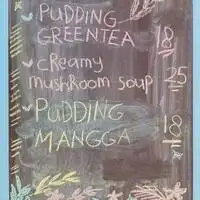 PUDDING
GREENTEA 18
creamy
mushroom soup 25
PUDDING
MANGGA 18